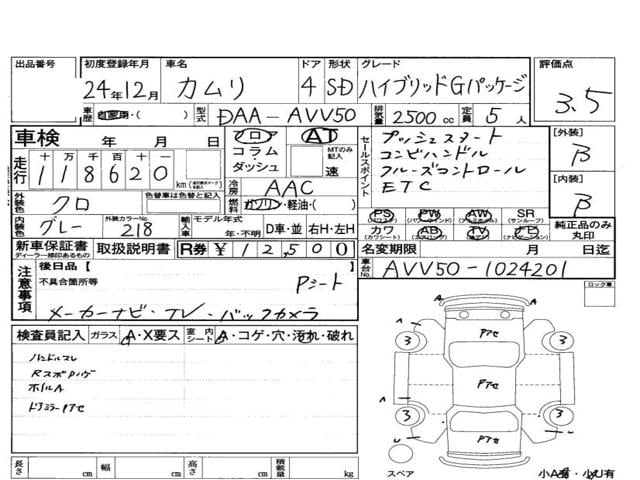 出品番号 初度登録年月 車名 ドア 形状 グレード 評価点
24年12月 カムリ 4 SD ハイブリッドGパッケージ 3.5
車歴 自家用・( ) 型式 DAA-AVV50 排気量 2500cc 定員 5人
車検 年 月 日 フロア コラム・ダッシュ AT MTのみ記入 速
走行 十 万 千 百 十 一
118620 km
セールスポイント
プッシュスタート
コンビハンドル
クルーズコントロール
ETC
[外装] B
[内装] B
冷房 AAC
外装色 クロ 色替車は色替と記入 燃料 ガソリン・軽油・( )
内装色 グレー 外装カラーNo. 218 輸入車 モデル年式 年・不明 D車・並 右H・左H
PS (パワステ) PW (パワーウインド) AW (アルミホイール) SR (サンルーフ)
カワ (カワシート) AB (エアバッグ) TV (テレビ) ナビ (ナビゲーション) 純正品のみ丸印
新車保証書 ディーラー捺印あるもの 取扱説明書 R券 ¥12,500 名変期限 月 日迄
注意事項 後日品[ ] 車台No. AVV50-1024201
不具合箇所等 Pシート
メーカーナビ・TV・バックカメラ
ロック車
検査員記入 ガラス A・X要ス 室内シート A・コゲ・穴・汚れ・破れ
ハンドルスレ
ホイルA
ドアミラーアセ
アセ
3 3
アセ
3 3
アセ
長さ cm 幅 cm 高さ cm 積載量 kg
スペア 小A有・小U有